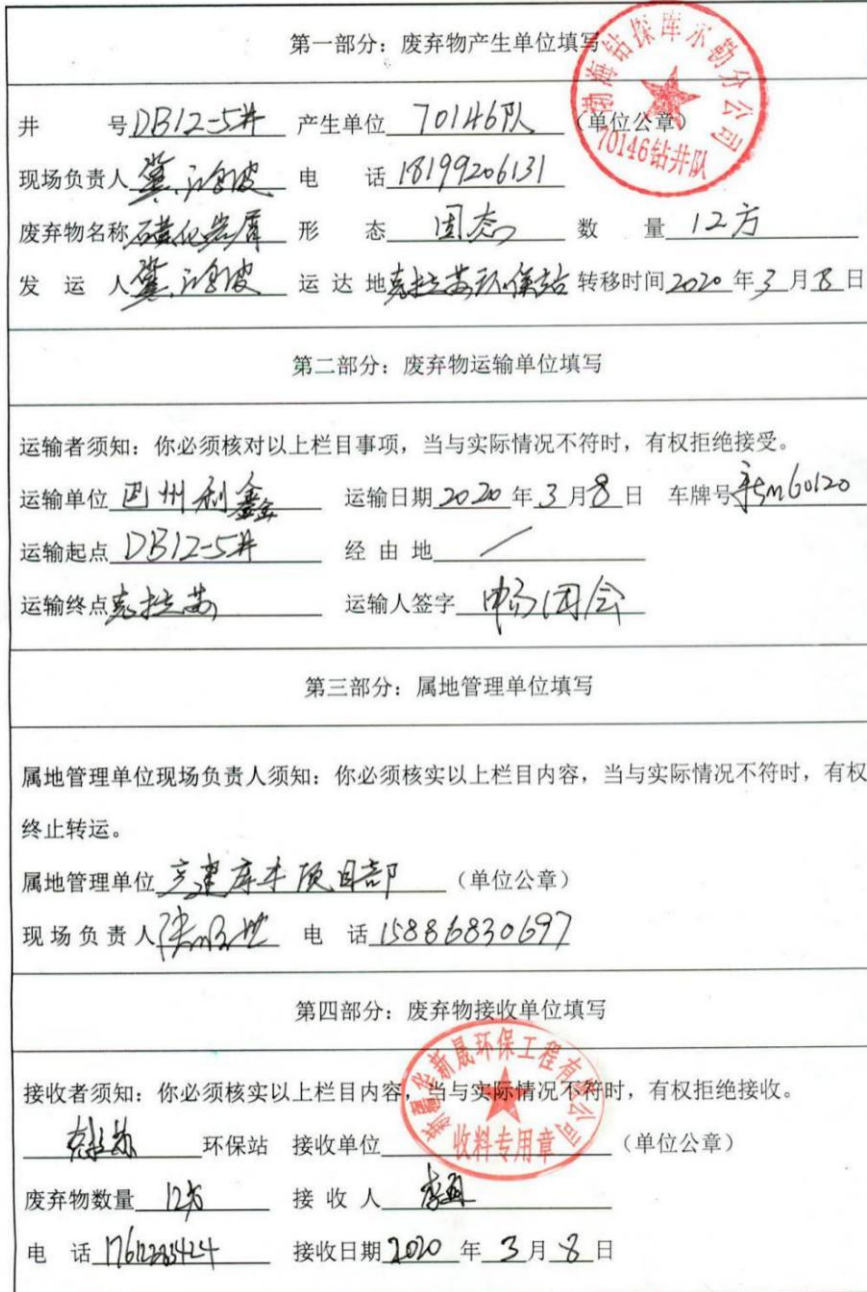 第一部分：废弃物产生单位填写
渤海钻探库尔勒分公司
70146钻井队
井 号DB12-5井 产生单位 70146队 （单位公章）
现场负责人 电 话 18199206131
废弃物名称磺化岩屑 形 态 固态 数 量 12方
发 运 人 运 达 地克拉苏环保站 转移时间2020年3月8日
第二部分：废弃物运输单位填写
运输者须知：你必须核对以上栏目事项，当与实际情况不符时，有权拒绝接受。
运输单位 巴州利鑫 运输日期2020年3月8日 车牌号新M60120
运输起点 DB12-5井 经 由 地 /
运输终点克拉苏 运输人签字
第三部分：属地管理单位填写
属地管理单位现场负责人须知：你必须核实以上栏目内容，当与实际情况不符时，有权
终止转运。
属地管理单位 库车项目部 （单位公章）
现场负责人 电 话 15886830697
第四部分：废弃物接收单位填写
新疆华新晟环保工程有限公司
收料专用章
接收者须知：你必须核实以上栏目内容，当与实际情况不符时，有权拒绝接收。
克拉苏 环保站 接收单位 （单位公章）
废弃物数量 12方 接 收 人
电 话 接收日期2020年3月8日